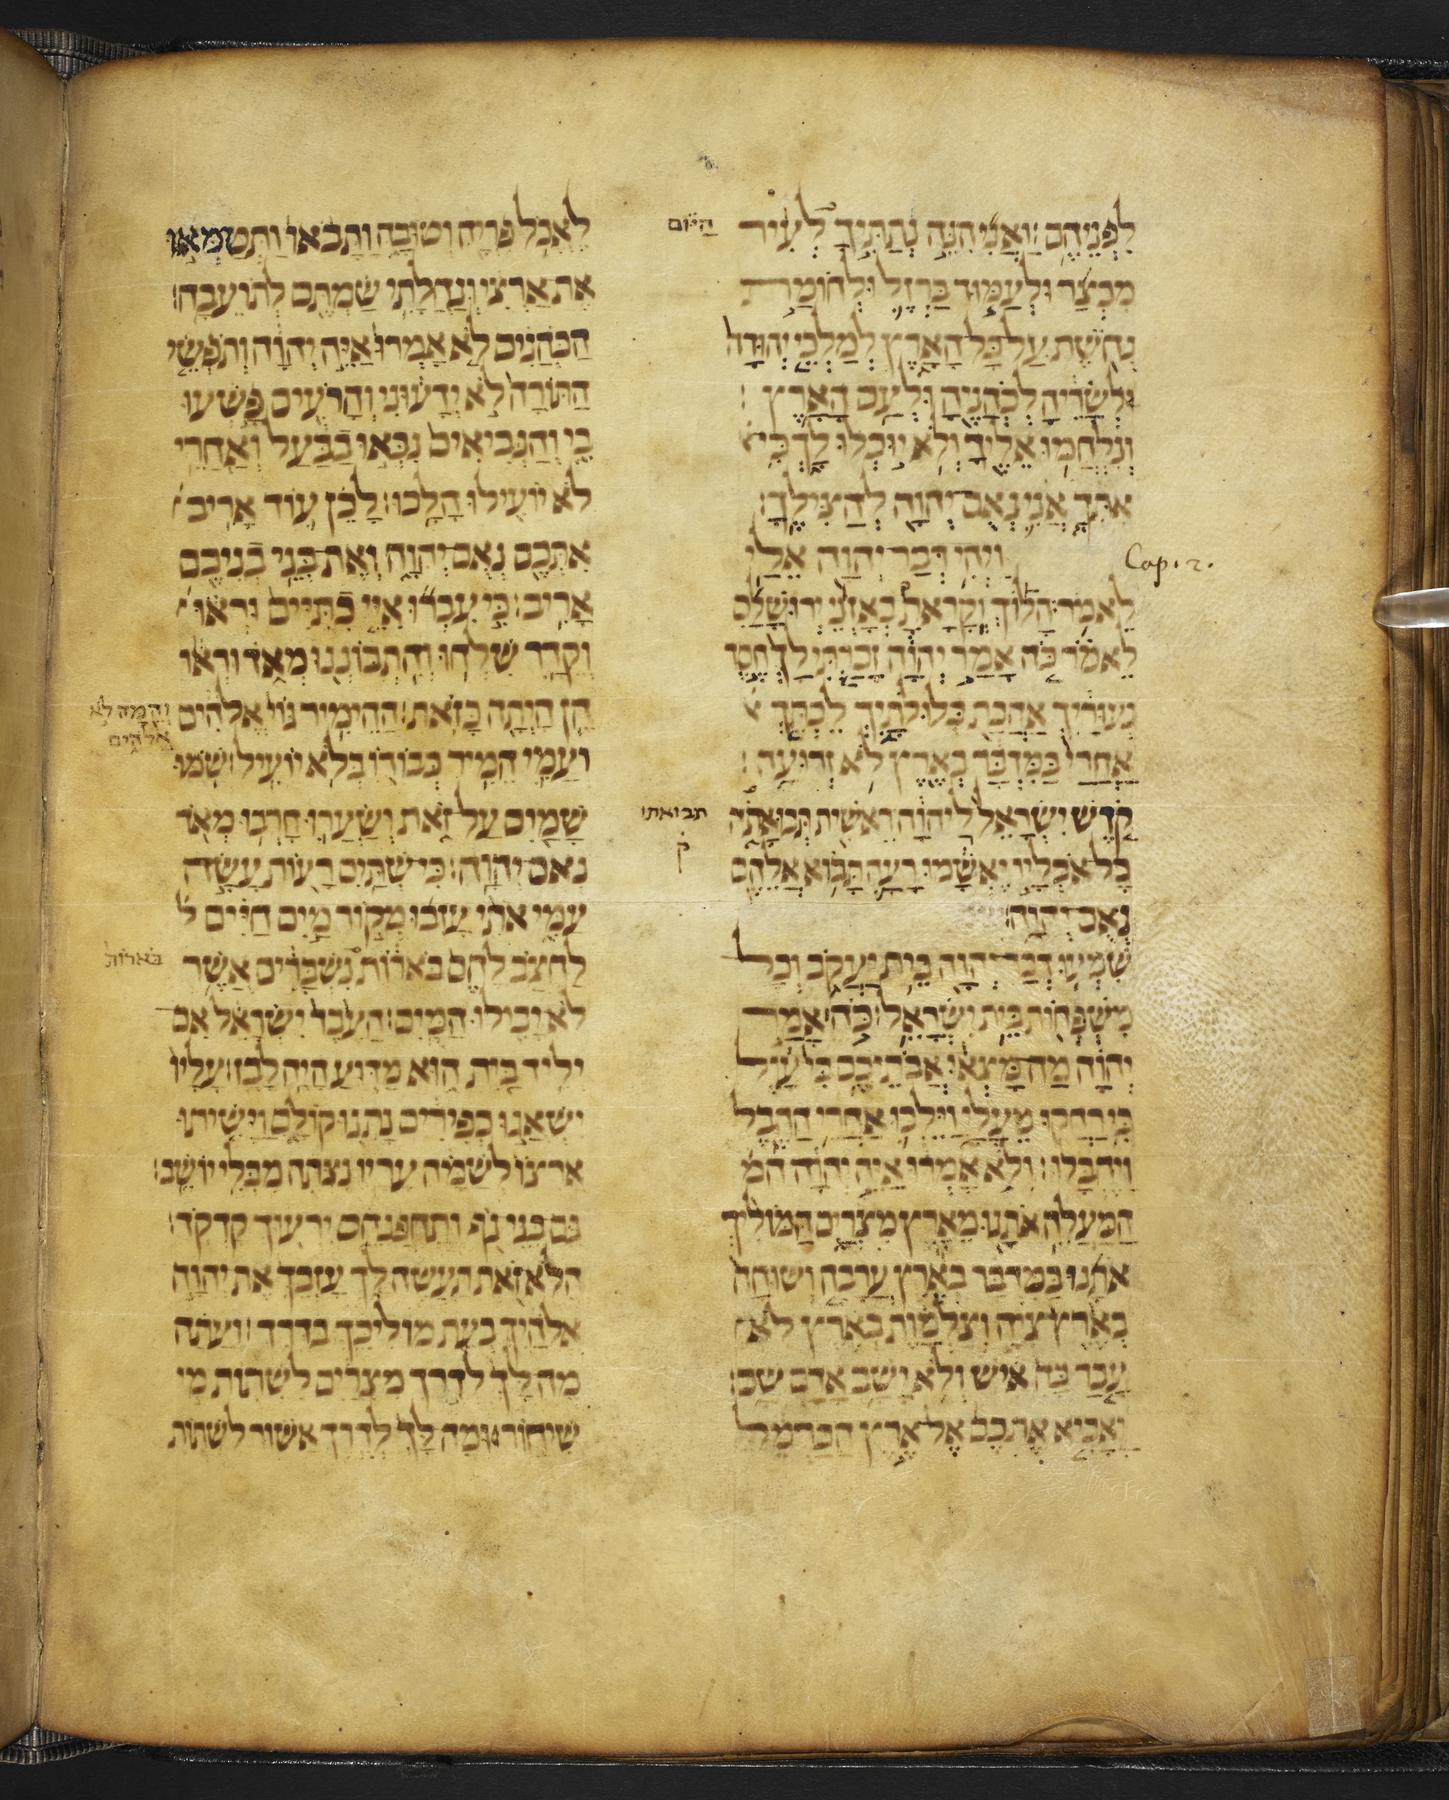 לִפְנֵיהֶם׃ וַאֲנִי הִנֵּה נְתַתִּיךָ לְעִיר
היום
מִבְצָר וּלְעַמּוּד בַּרְזֶל וּלְחֹומֹת
נְחֹשֶׁת עַל כָּל הָאָרֶץ לְמַלְכֵי יְהוּדָה
לְשָׂרֶיהָ לְכֹהֲנֶיהָ וּלְעַם הָאָרֶץ׃
וְנִלְחֲמוּ אֵלֶיךָ וְלֹא יוּכְלוּ לָךְ כִּי
אִתְּךָ אֲנִי נְאֻם יְהוָה לְהַצִּילֶךָ׃
וַיְהִי דְּבַר יְהוָה אֵלַי
Cap. 2.
לֵאמֹר׃ הָלוֹךְ וְקָרָאתָ בְאָזְנֵי יְרוּשָׁלִַם
לֵאמֹר כֹּה אָמַר יְהוָה זָכַרְתִּי לָךְ חֶסֶד
נְעוּרַיִךְ אַהֲבַת כְּלוּלֹתָיִךְ לֶכְתֵּךְ
אַחֲרַי בַּמִּדְבָּר בְּאֶרֶץ לֹא זְרוּעָה׃
קֹדֶשׁ יִשְׂרָאֵל לַיהוָה רֵאשִׁית תְּבוּאָתֹה
תבואתו
ק
כָּל אֹכְלָיו יֶאְשָׁמוּ רָעָה תָּבוֹא אֲלֵיהֶם
נְאֻם יְהוָה׃
שִׁמְעוּ דְבַר יְהוָה בֵּית יַעֲקֹב וְכָל
מִשְׁפְּחוֹת בֵּית יִשְׂרָאֵל׃ כֹּה אָמַר
יְהוָה מַה מָּצְאוּ אֲבוֹתֵיכֶם בִּי עָוֶל
כִּי רָחֲקוּ מֵעָלָי וַיֵּלְכוּ אַחֲרֵי הַהֶבֶל
וַיֶּהְבָּלוּ׃ וְלֹא אָמְרוּ אַיֵּה יְהוָה המ
הַמַּעֲלֶה אֹתָנוּ מֵאֶרֶץ מִצְרָיִם הַמּוֹלִיךְ
אֹתָנוּ בַּמִּדְבָּר בְּאֶרֶץ עֲרָבָה וְשׁוּחָה
בְּאֶרֶץ צִיָּה וְצַלְמָוֶת בְּאֶרֶץ לֹא
עָבַר בָּהּ אִישׁ וְלֹא יָשַׁב אָדָם שָׁם׃
וָאָבִיא אֶתְכֶם אֶל אֶרֶץ הַכַּרְמֶל
לֶאֱכֹל פִּרְיָהּ וְטוּבָהּ וַתָּבֹאוּ וַתְּטַמְּאוּ
אֶת אַרְצִי וְנַחֲלָתִי שַׂמְתֶּם לְתוֹעֵבָה׃
הַכֹּהֲנִים לֹא אָמְרוּ אַיֵּה יְהוָה וְתֹפְשֵׂי
הַתּוֹרָה לֹא יְדָעוּנִי וְהָרֹעִים פָּשְׁעוּ
בִי וְהַנְּבִיאִים נִבְּאוּ בַבַּעַל וְאַחֲרֵי
לֹא יוֹעִילוּ הָלָכוּ׃ לָכֵן עוֹד אָרִיב
אִתְּכֶם נְאֻם יְהוָה וְאֶת בְּנֵי בְנֵיכֶם
אָרִיב׃ כִּי עִבְרוּ אִיֵּי כִתִּיִּים וּרְאוּ
וְקֵדָר שִׁלְחוּ וְהִתְבּוֹנְנוּ מְאֹד וּרְאוּ
הֵן הָיְתָה כָּזֹאת׃ הַהֵימִיר גּוֹי אֱלֹהִים
והמה לא
אלהים
וְעַמִּי הֵמִיר כְּבוֹדוֹ בְּלֹא יוֹעִיל׃ שֹׁמּוּ
שָׁמַיִם עַל זֹאת וְשַׂעֲרוּ חָרְבוּ מְאֹד
נְאֻם יְהוָה׃ כִּי שְׁתַּיִם רָעוֹת עָשָׂה
עַמִּי אֹתִי עָזְבוּ מְקוֹר מַיִם חַיִּים ל
לַחְצֹב לָהֶם בֹּארוֹת נִשְׁבָּרִים אֲשֶׁר
בארות
לֹא יָכִילוּ הַמָּיִם׃ הַעֶבֶד יִשְׂרָאֵל אִם
יְלִיד בַּיִת הוּא מַדּוּעַ הָיָה לָבַז׃ עָלָיו
יִשְׁאֲגוּ כְפִירִים נָתְנוּ קוֹלָם וַיָּשִׁיתוּ
אַרְצוֹ לְשַׁמָּה עָרָיו נִצְּתָה מִבְּלִי יוֹשֵׁב׃
גַּם בְּנֵי נֹף וְתַחְפַּנְחֵס יִרְעוּךְ קָדְקֹד׃
הֲלֹא זֹאת תַּעֲשֶׂה לָּךְ עָזְבֵךְ אֶת יְהוָה
אֱלֹהַיִךְ בְּעֵת מוֹלִיכֵךְ בַּדָּרֶךְ׃ וְעַתָּה
מַה לָּךְ לְדֶרֶךְ מִצְרַיִם לִשְׁתּוֹת מֵי
שִׁיחוֹר וּמַה לָּךְ לְדֶרֶךְ אַשּׁוּר לִשְׁתּוֹת